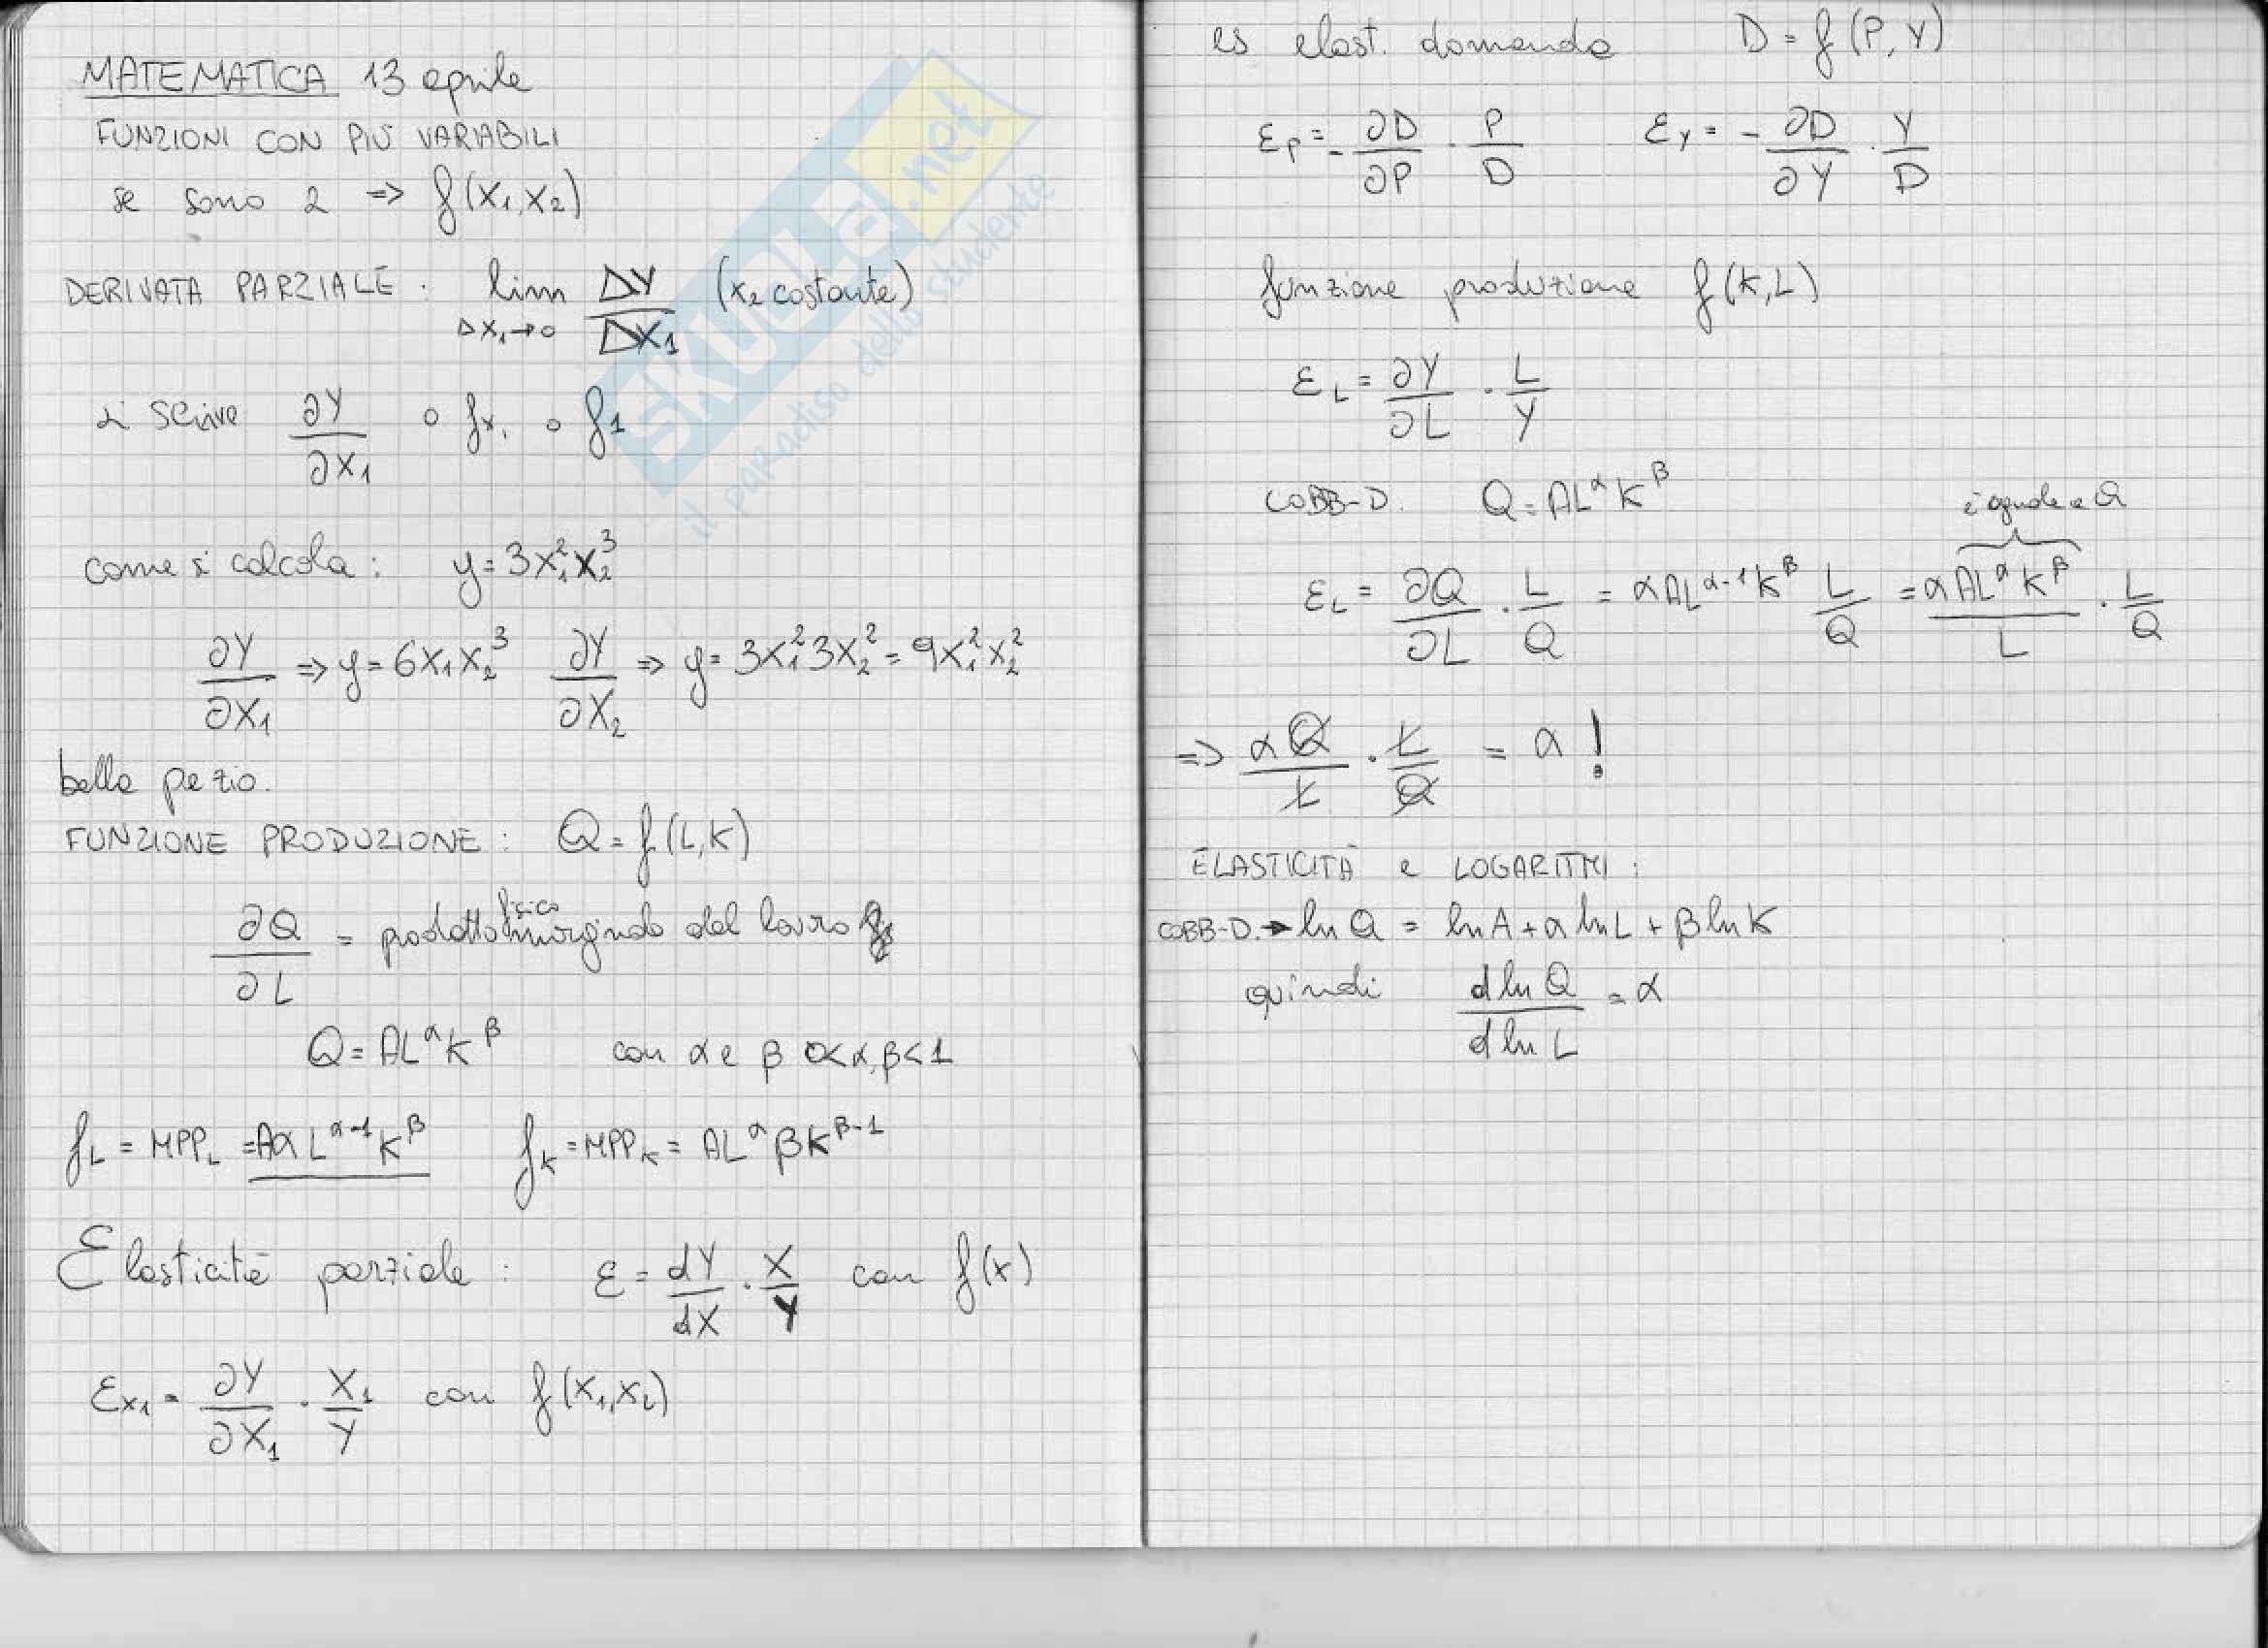 MATEMATICA 13 aprile
FUNZIONI CON PIÙ VARIABILI
se sono 2 => f(x₁,x₂)
DERIVATA PARZIALE: lim ΔX₁→0 ΔY/ΔX₁ (x₂ costante)
si scrive ∂Y/∂X₁ o fx₁ o f₁
come si calcola: y=3x₁²x₂³
∂Y/∂X₁ => y=6x₁x₂³ ∂Y/∂X₂ => y=3x₁²3x₂²=9x₁²x₂²
bella pe zio.
FUNZIONE PRODUZIONE: Q=f(L,K)
∂Q/∂L = prodotto fisico marginale del lavoro
Q=AL^αK^β con α e β 0<α,β<1
f_L = MPP_L =AαL^α-1K^β f_K=MPP_K= AL^αβK^β-1
Elasticità parziale: ε=dY/dX · X/Y con f(x)
εx₁= ∂Y/∂X₁ · X₁/Y con f(x₁,x₂)
es elast. domanda D=f(P,Y)
ε_P=-∂D/∂P · P/D ε_Y=-∂D/∂Y · Y/D
funzione produzione f(K,L)
ε_L=∂Y/∂L · L/Y
COBB-D. Q=AL^αK^β
è uguale a Q
ε_L= ∂Q/∂L · L/Q = αAL^α-1K^β L/Q = αAL^αK^β/L · L/Q
=> αQ/L · L/Q = α!
ELASTICITÀ e LOGARITMI:
COBB-D.→ ln Q = lnA+αlnL+βlnK
quindi dlnQ/dlnL=α
SKUOLA.net
il paradiso dello studente